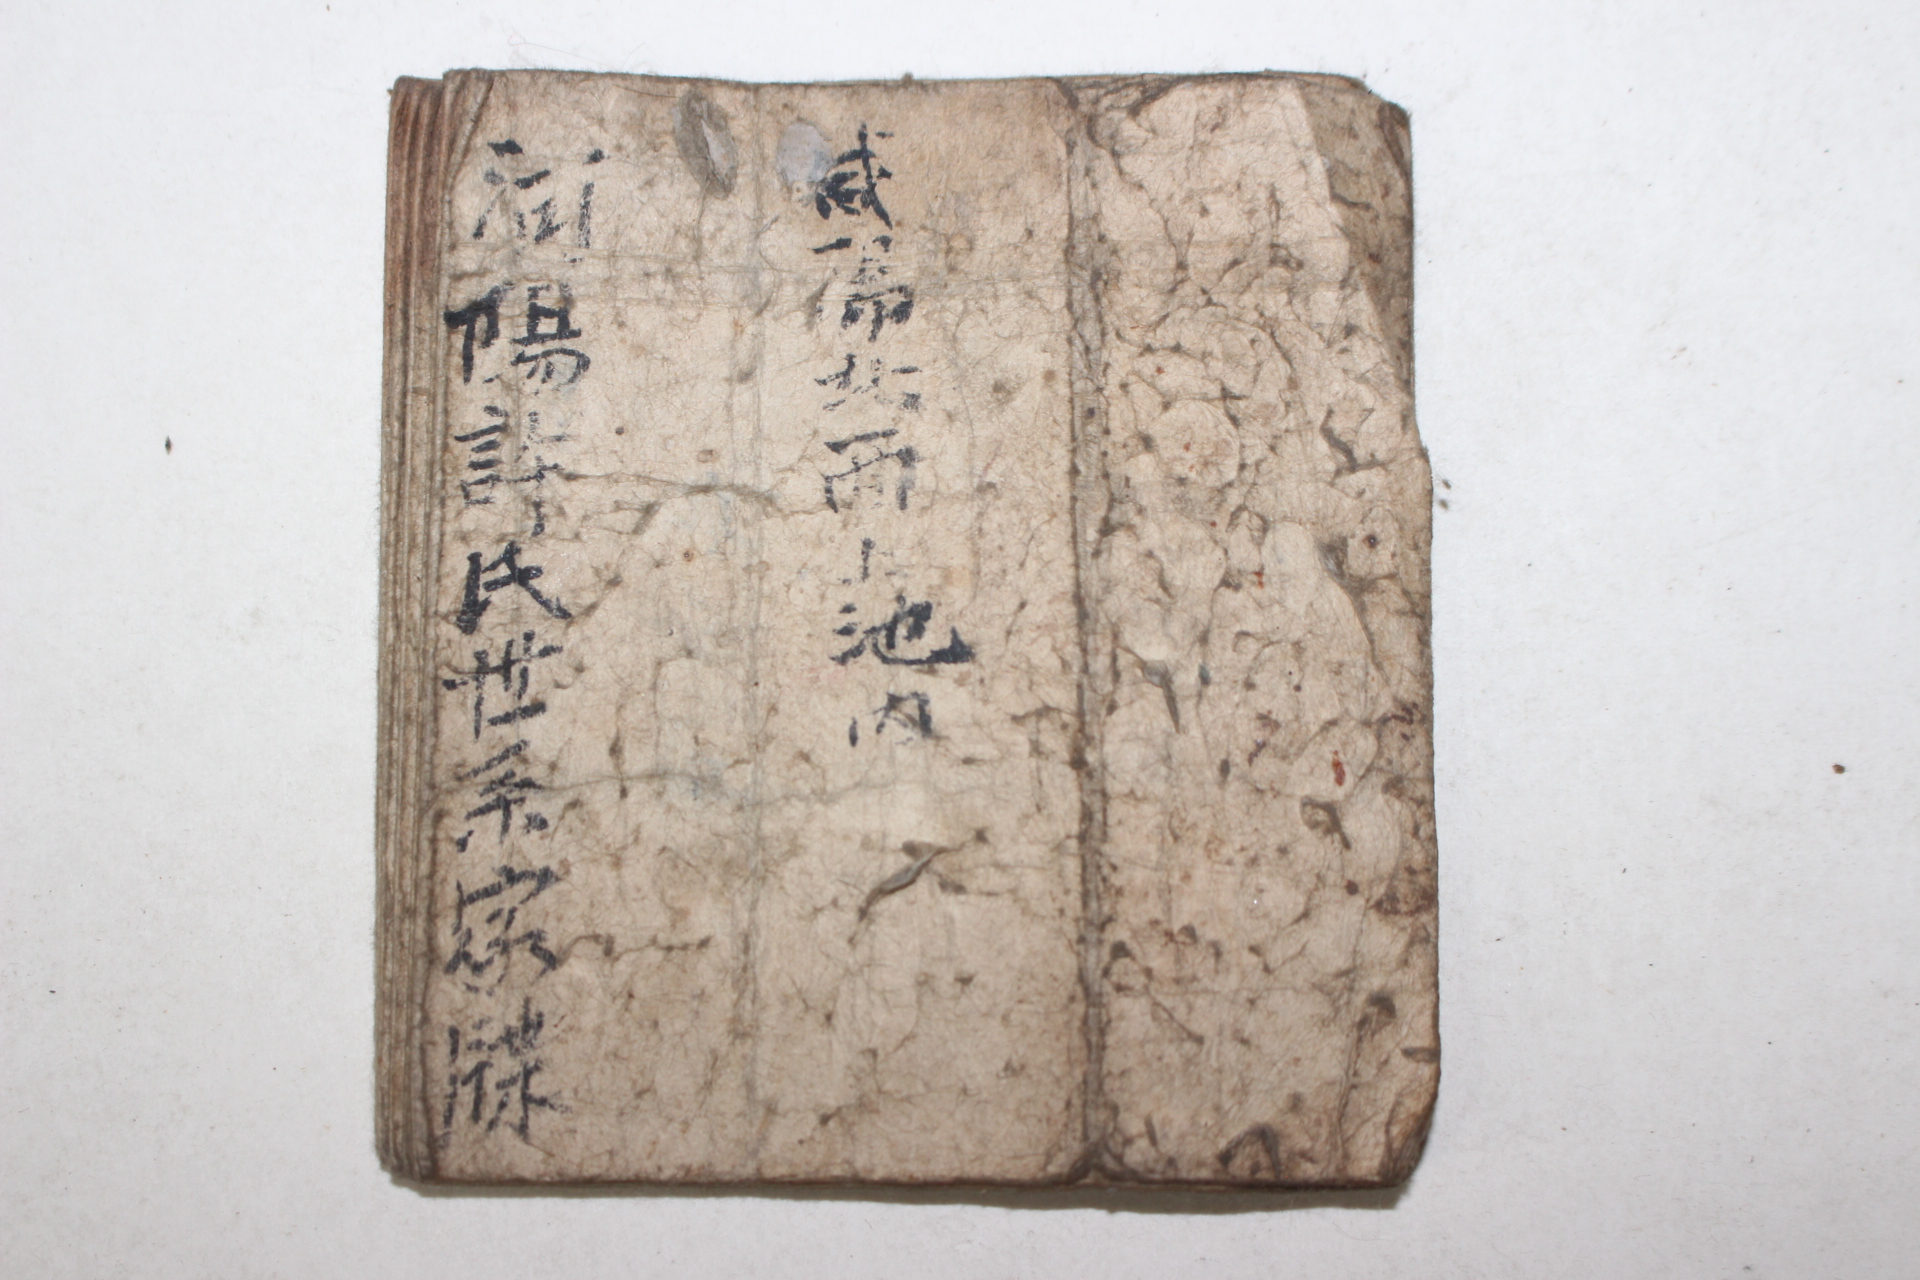 咸北面上池内
河陽許氏世系家牒